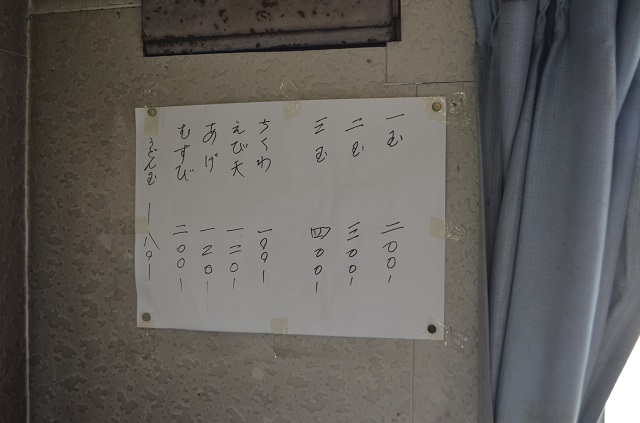 一玉 二〇〇-
二玉 三〇〇-
三玉 四〇〇-
ちくわ 一〇〇-
えび天 一二〇-
あげ 一二〇-
むすび 二〇〇-
うどん玉 一八〇-